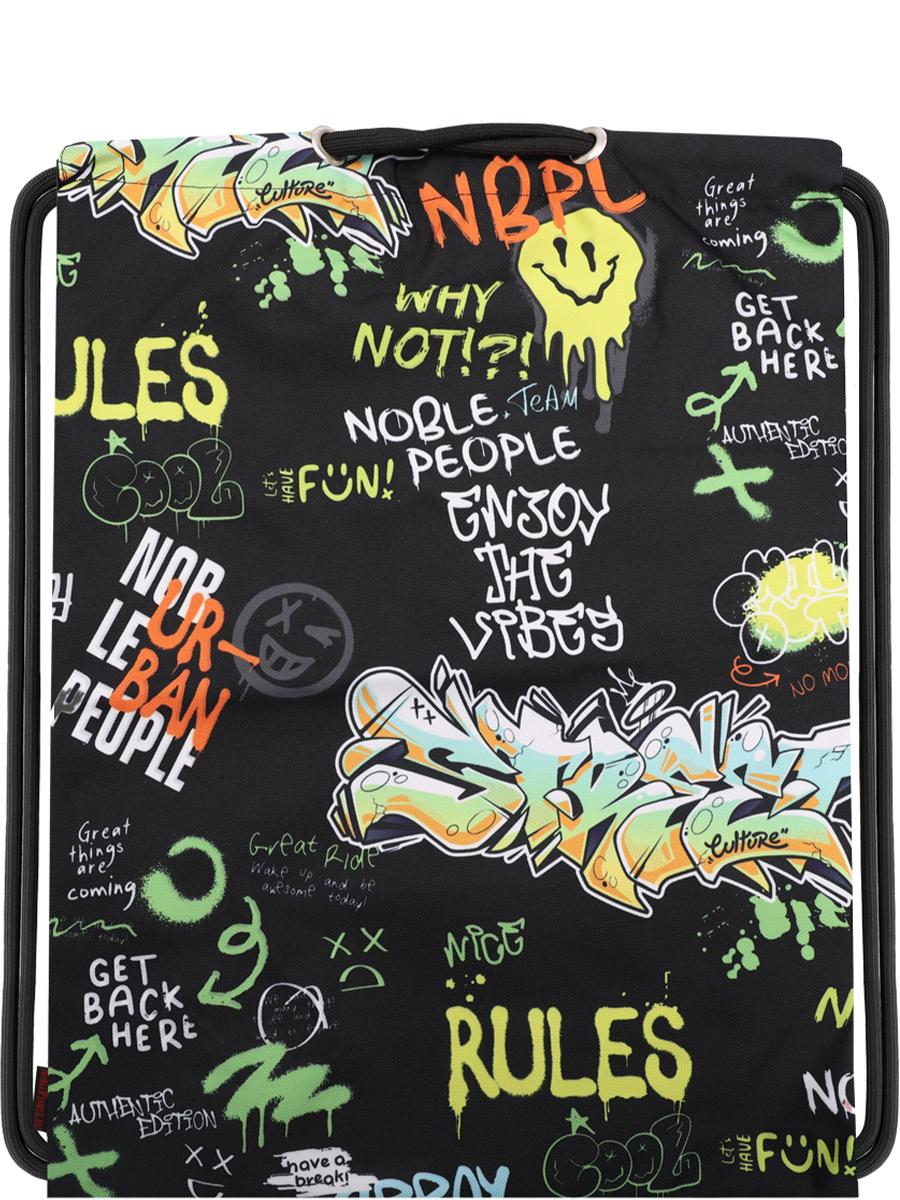 "Culture"
NBPL
Great
things
are
coming
WHY
NOT!?!
GET
BACK
HERE
ULES
NOBLE TEAM
PEOPLE
AUTHENTIC
EDITIO
COOL
Let's
HAVE
FÜN!
ENJOY
THE
VIBES
NOB
LE
PEOPLE
UR-
BAN
NO MO
STREET
"Culture"
Great
things
are
coming
Great Ride
Wake up and be
awesome today!
NICE
GET
BACK
HERE
RULES
AUTHENTIC
EDITION
COOL
NO
Let's
HAVE
FÜN!
have a
break!